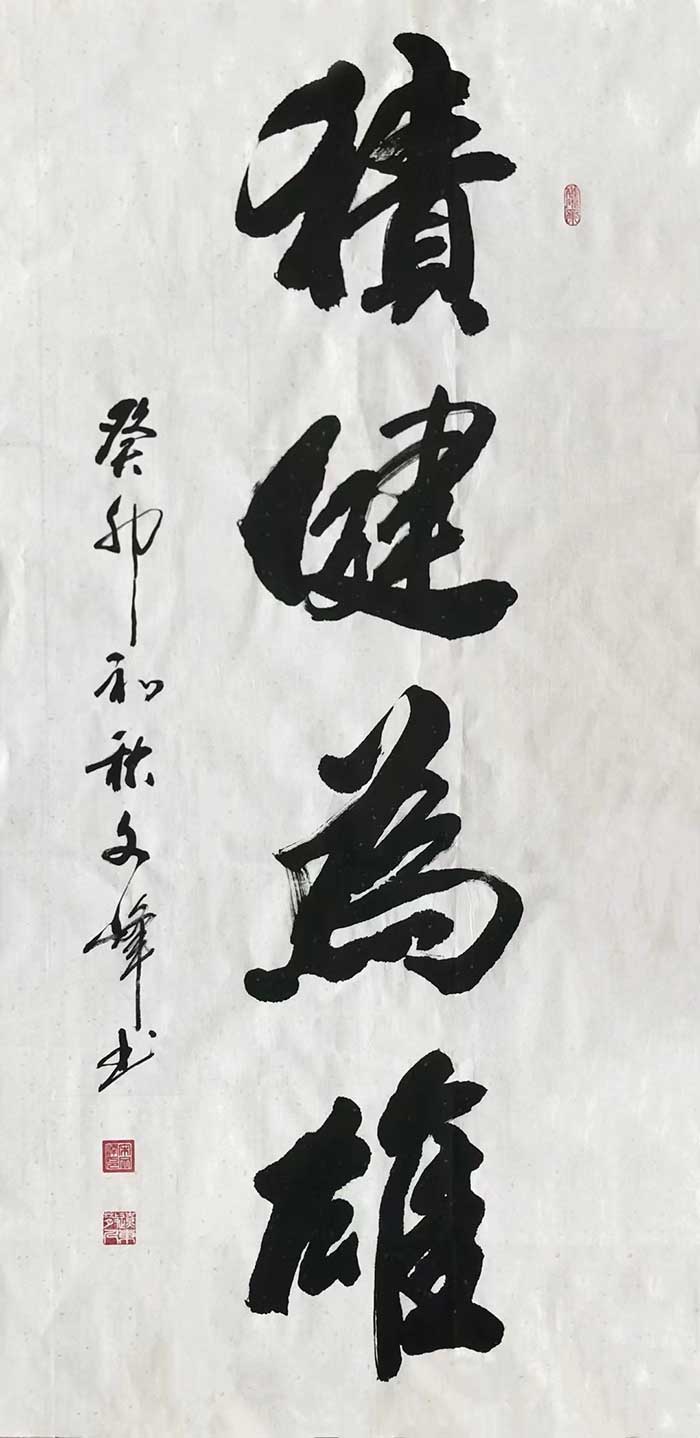 積健為雄
癸卯初秋文峰书